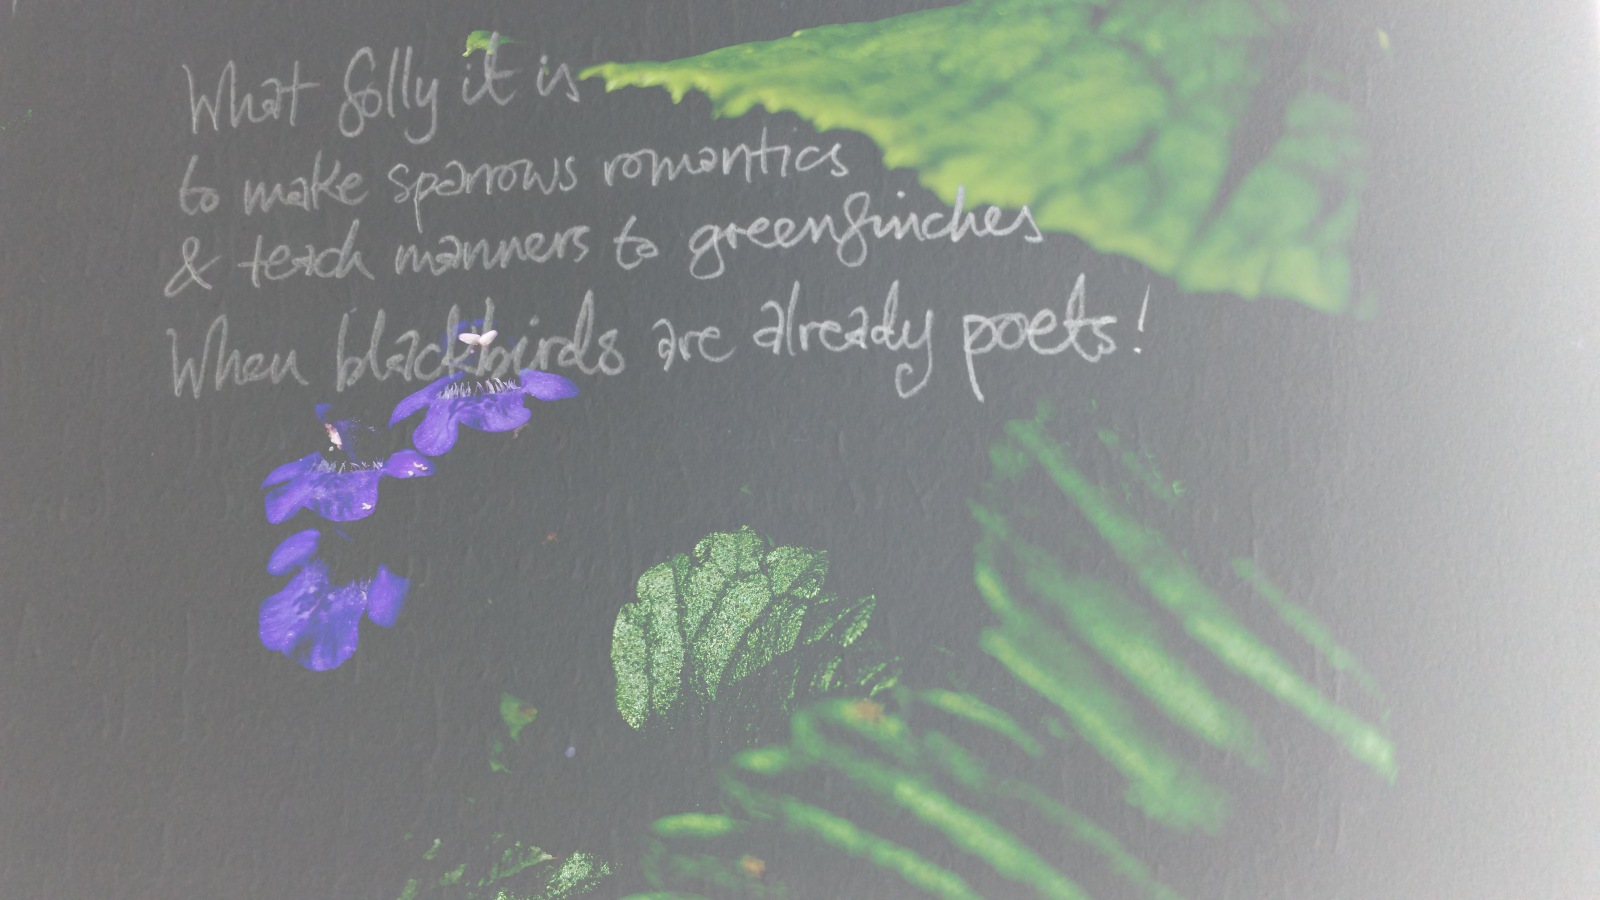 What folly it is
to make sparrows romantics
& teach manners to greenfinches
When blackbirds are already poets!